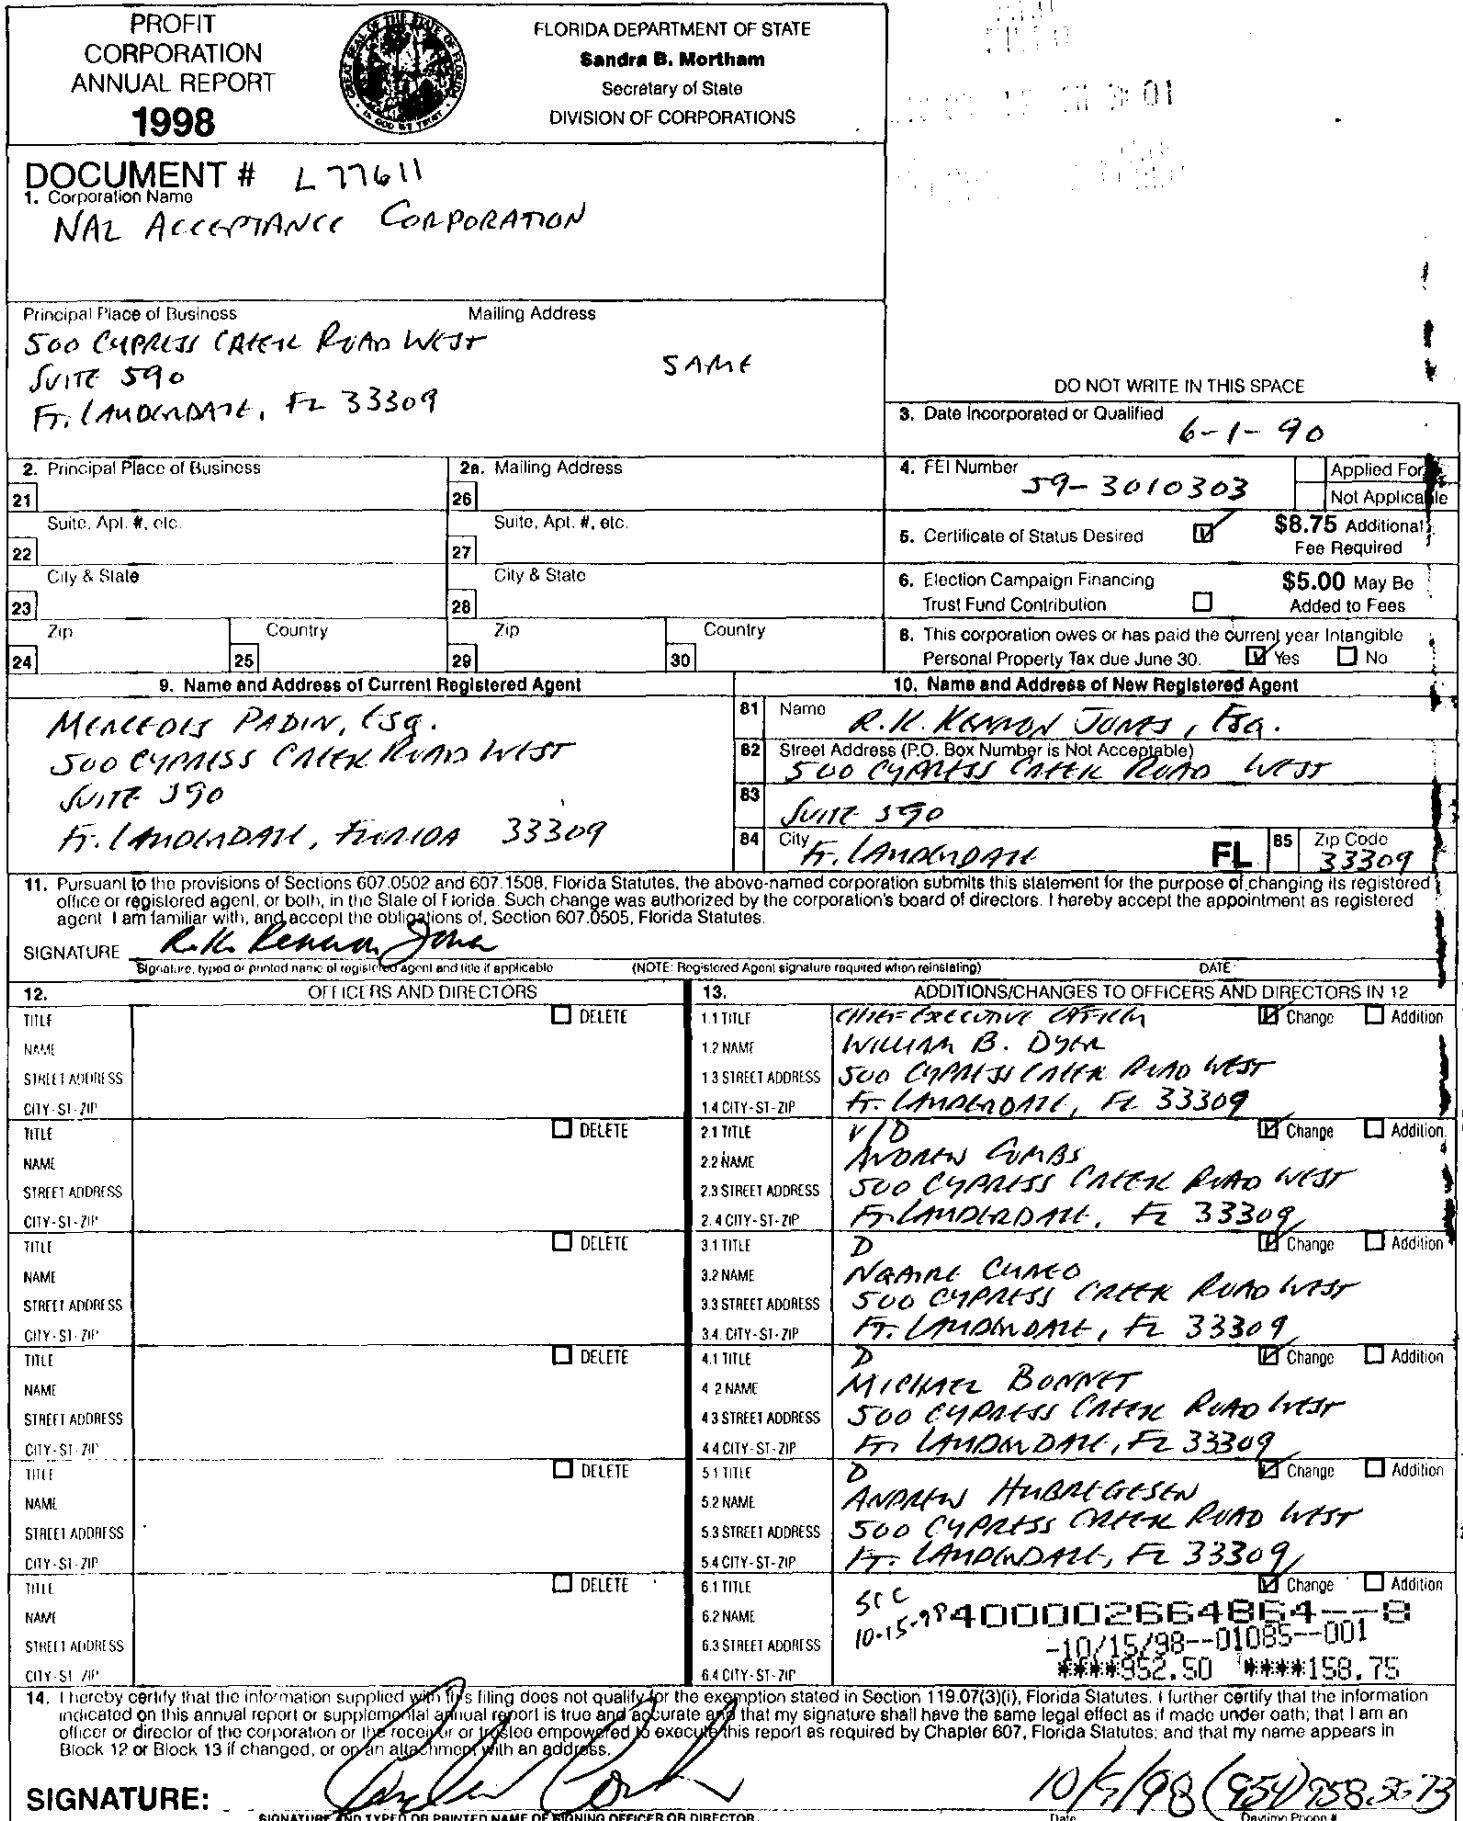 PROFIT
CORPORATION
ANNUAL REPORT
1998
GREAT SEAL OF THE STATE OF FLORIDA
IN GOD WE TRUST
FLORIDA DEPARTMENT OF STATE
Sandra B. Mortham
Secretary of State
DIVISION OF CORPORATIONS
01
DOCUMENT # L77611
1. Corporation Name
NAL ACCEPTANCE CORPORATION
Principal Place of Business Mailing Address
500 CYPRESS CREEK ROAD WEST
SUITE 590 SAME
FT. LAUDERDALE, FL 33309
DO NOT WRITE IN THIS SPACE
3. Date Incorporated or Qualified
6-1-90
2. Principal Place of Business 2a. Mailing Address
21 26
Suite, Apt. #, etc. Suite, Apt. #, etc.
22 27
City & State City & State
23 28
Zip Country Zip Country
24 25 29 30
4. FEI Number
59-3010303
Applied For
Not Applicable
5. Certificate of Status Desired $8.75 Additional
Fee Required
6. Election Campaign Financing $5.00 May Be
Trust Fund Contribution Added to Fees
8. This corporation owes or has paid the current year Intangible
Personal Property Tax due June 30. Yes No
9. Name and Address of Current Registered Agent
MERCEDES PADIN, ESQ.
500 CYPRESS CREEK ROAD WEST
SUITE 590
FT. LAUDERDALE, FLORIDA 33309
10. Name and Address of New Registered Agent
81 Name
R.K. KENNON JONES, ESQ.
82 Street Address (P.O. Box Number is Not Acceptable)
500 CYPRESS CREEK ROAD WEST
83
SUITE 590
84 City FL 85 Zip Code
FT. LAUDERDALE 33309
11. Pursuant to the provisions of Sections 607.0502 and 607.1508, Florida Statutes, the above-named corporation submits this statement for the purpose of changing its registered
office or registered agent, or both, in the State of Florida. Such change was authorized by the corporation's board of directors. I hereby accept the appointment as registered
agent I am familiar with, and accept the obligations of, Section 607.0505, Florida Statutes.
SIGNATURE R.K. Kennon Jones
Signature, typed or printed name of registered agent and title if applicable (NOTE: Registered Agent signature required when reinstating) DATE
12. OFFICERS AND DIRECTORS
TITLE DELETE
NAME
STREET ADDRESS
CITY-ST-ZIP
TITLE DELETE
NAME
STREET ADDRESS
CITY-ST-ZIP
TITLE DELETE
NAME
STREET ADDRESS
CITY-ST-ZIP
TITLE DELETE
NAME
STREET ADDRESS
CITY-ST-ZIP
TITLE DELETE
NAME
STREET ADDRESS
CITY-ST-ZIP
TITLE DELETE
NAME
STREET ADDRESS
CITY-ST-ZIP
13. ADDITIONS/CHANGES TO OFFICERS AND DIRECTORS IN 12
1.1 TITLE CHIEF EXECUTIVE OFFICER Change Addition
1.2 NAME WILLIAM B. DYER
1.3 STREET ADDRESS 500 CYPRESS CREEK ROAD WEST
1.4 CITY-ST-ZIP FT. LAUDERDALE, FL 33309
2.1 TITLE V/D Change Addition
2.2 NAME ANDREW COMBS
2.3 STREET ADDRESS 500 CYPRESS CREEK ROAD WEST
2.4 CITY-ST-ZIP FT. LAUDERDALE, FL 33309
3.1 TITLE D Change Addition
3.2 NAME NGAIRE CUNEO
3.3 STREET ADDRESS 500 CYPRESS CREEK ROAD WEST
3.4. CITY-ST-ZIP FT. LAUDERDALE, FL 33309
4.1 TITLE D Change Addition
4.2 NAME MICHAEL BONNET
4.3 STREET ADDRESS 500 CYPRESS CREEK ROAD WEST
4.4 CITY-ST-ZIP FT. LAUDERDALE, FL 33309
5.1 TITLE D Change Addition
5.2 NAME ANDREW HUBREGESEN
5.3 STREET ADDRESS 500 CYPRESS CREEK ROAD WEST
5.4 CITY-ST-ZIP FT. LAUDERDALE, FL 33309
6.1 TITLE Change Addition
SCC
6.2 NAME 10-15-98 400002664864--8
6.3 STREET ADDRESS -10/15/98--01085--001
6.4 CITY-ST-ZIP ****952.50 ****158.75
14. I hereby certify that the information supplied with this filing does not qualify for the exemption stated in Section 119.07(3)(i), Florida Statutes. I further certify that the information
indicated on this annual report or supplemental annual report is true and accurate and that my signature shall have the same legal effect as if made under oath; that I am an
officer or director of the corporation or the receiver or trustee empowered to execute this report as required by Chapter 607, Florida Statutes; and that my name appears in
Block 12 or Block 13 if changed, or on an attachment with an address.
SIGNATURE: 10/5/98 (954)958-3673
SIGNATURE AND TYPED OR PRINTED NAME OF SIGNING OFFICER OR DIRECTOR Date Daytime Phone #